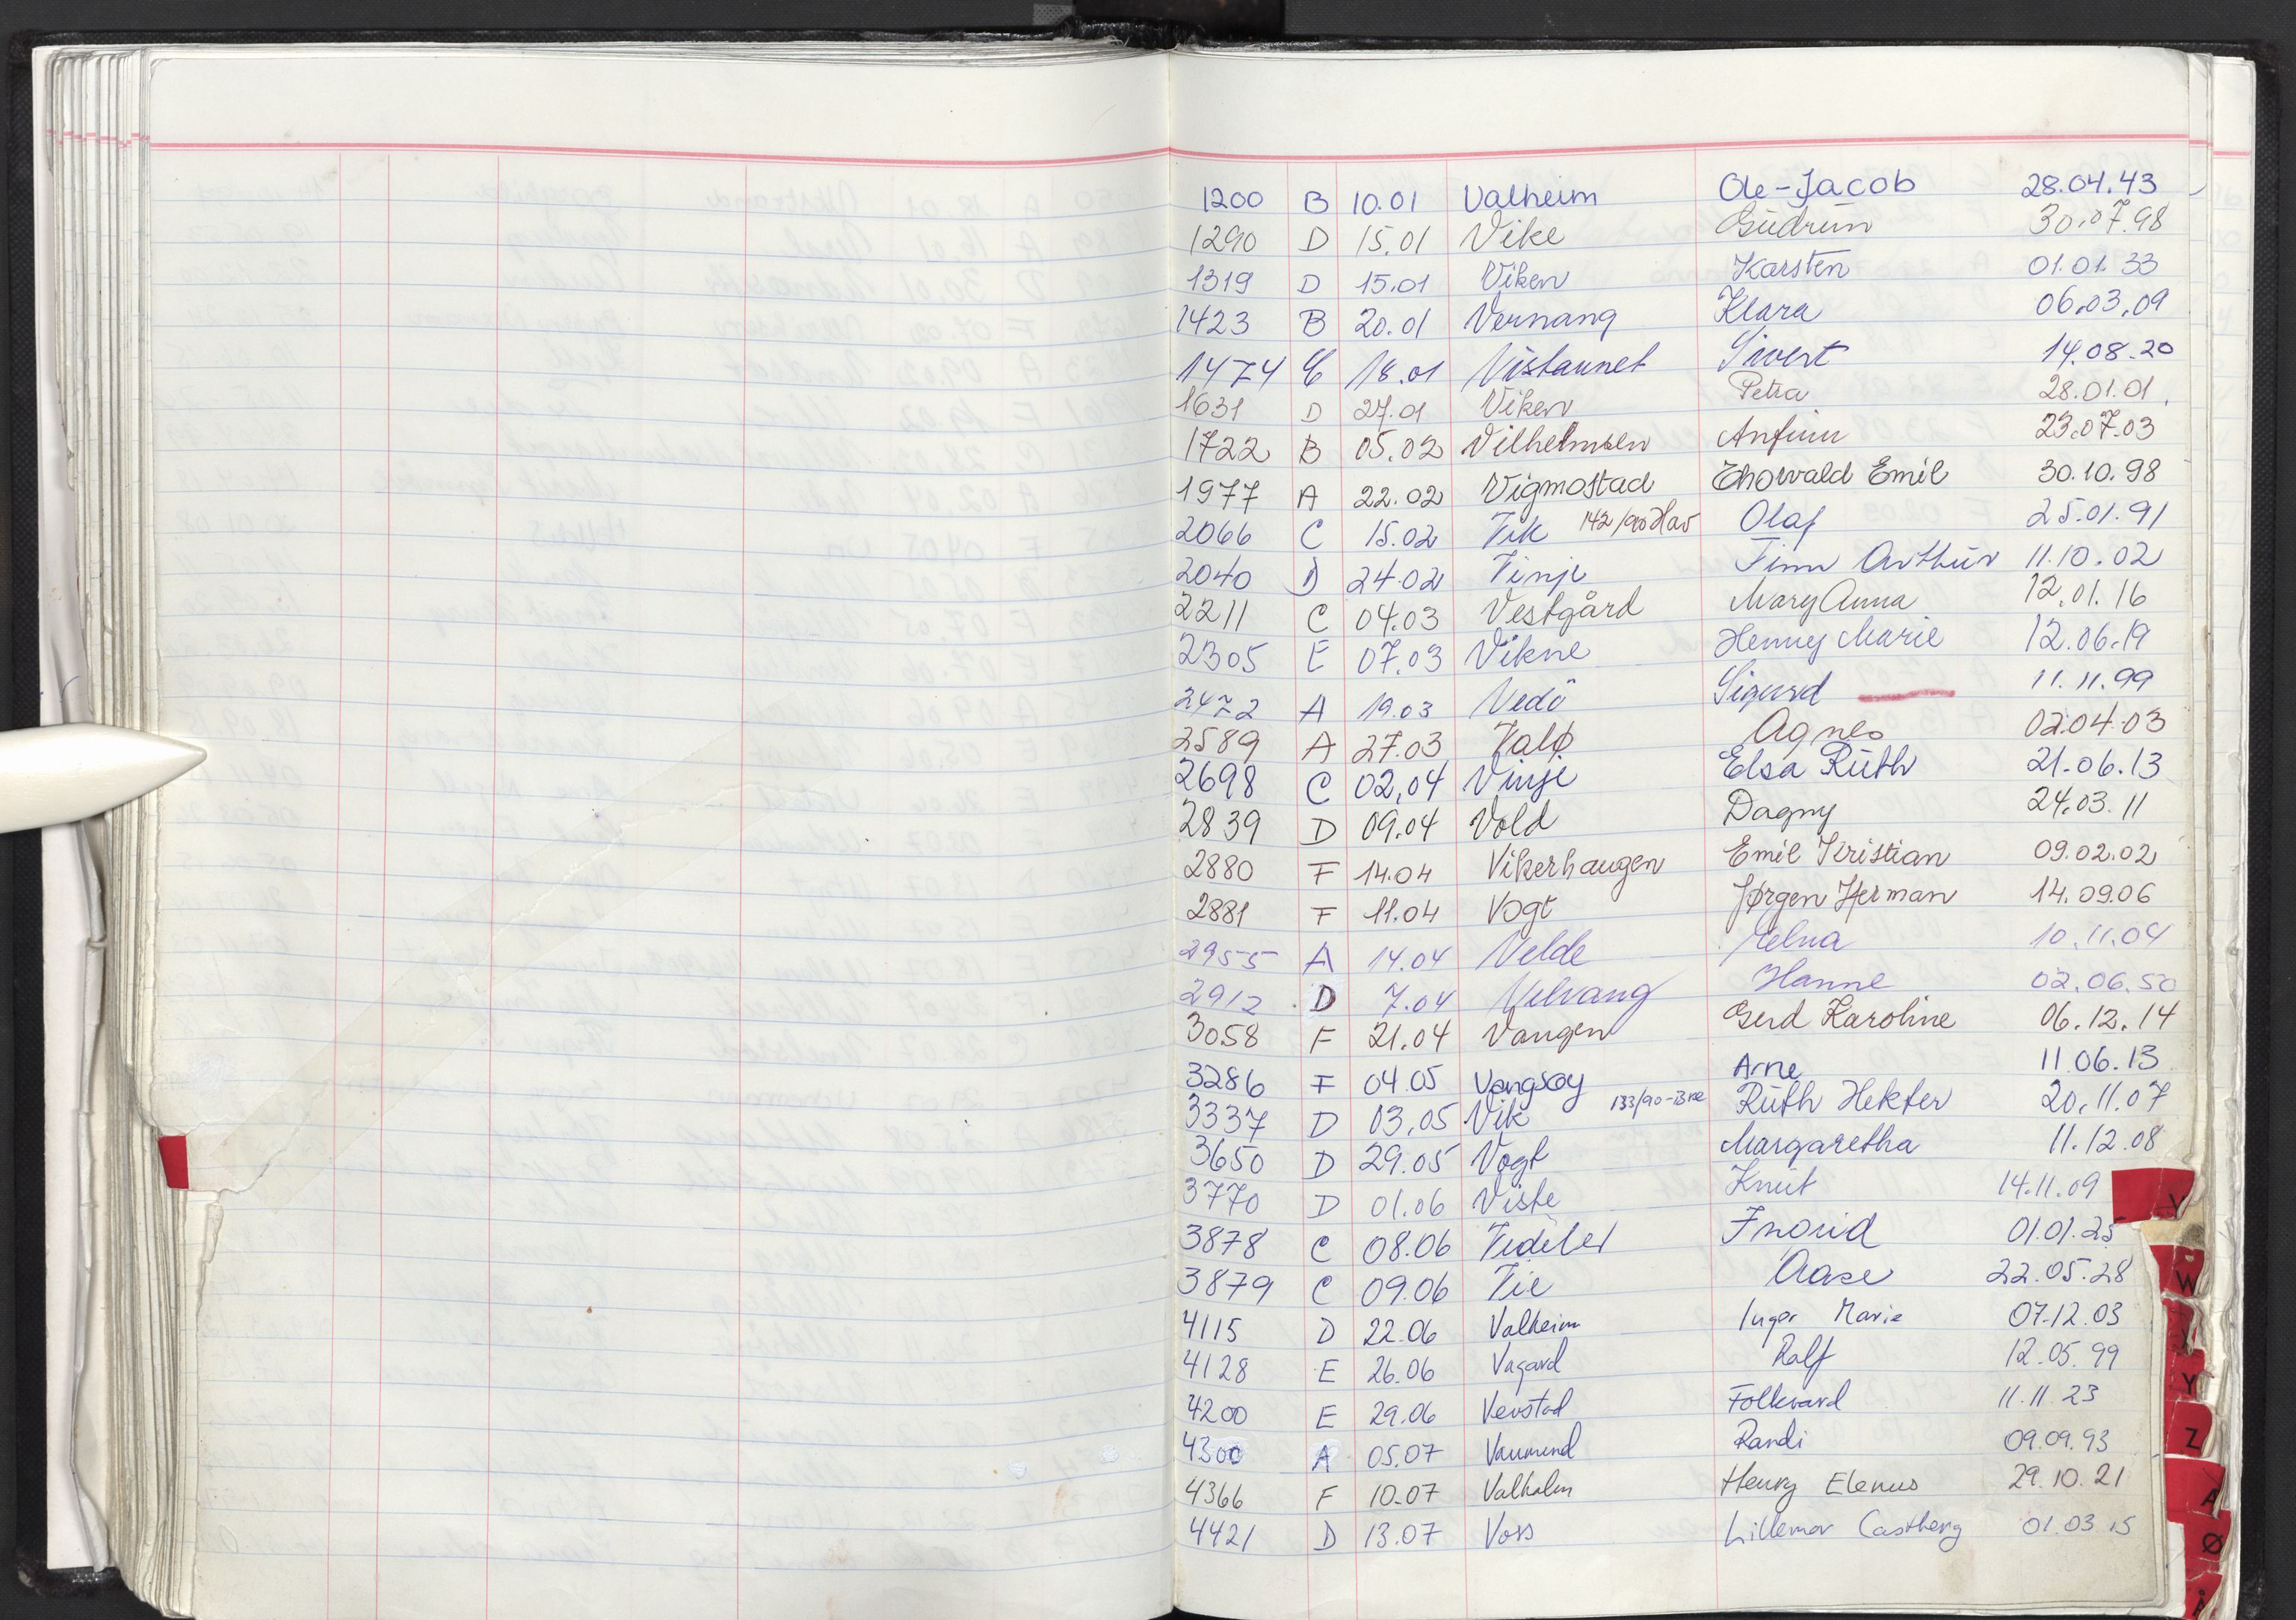 1200 B 10.01 Valheim Ole-Jacob 28.04.43
1290 D 15.01 Vike Gudrun 30.07.98
1319 D 15.01 Viken Karsten 01.01.33
1423 B 20.01 Vernang Klara 06.03.09
1474 C 18.01 Vistaunet Sivert 14.08.20
1631 D 27.01 Viken Petra 28.01.01
1722 B 05.02 Vilhelmsen Anfinn 23.07.03
1977 A 22.02 Vigmostad Thorvald Emil 30.10.98
2066 C 15.02 Vik 142/90 Hav Olaf 25.01.91
2040 D 24.02 Vinje Finn Arthur 11.10.02
2211 C 04.03 Vestgård Mary Anna 12.01.16
2305 E 07.03 Vikne Henny Marie 12.06.19
2472 A 19.03 Vedö Sigurd 11.11.99
2589 A 27.03 Valø Agnes 02.04.03
2698 C 02.04 Vinje Elsa Ruth 21.06.13
2839 D 09.04 Vold Dagny 24.03.11
2880 F 14.04 Vikerhaugen Emil Kristian 09.02.02
2881 F 11.04 Vogt Jørgen Herman 14.09.06
2955 A 14.04 Velde Elna 10.11.04
2912 D 7.04 Velvang Hanne 02.06.50
3058 F 21.04 Vangen Gerd Karoline 06.12.14
3286 F 04.05 Vangsøy Arne 11.06.13
3337 D 03.05 Vik 133/90-Bne Ruth Hekter 20.11.07
3650 D 29.05 Vogt Margaretha 11.12.08
3770 D 01.06 Viste Knut 14.11.09
3878 C 08.06 Ingrid 01.01.25
3879 C 09.06 Vie Aase 22.05.28
4115 D 22.06 Valheim Inger Marie 07.12.03
4128 E 26.06 Vagard Ralf 12.05.99
4200 E 29.06 Vevstad Folkvard 11.11.23
4300 A 05.07 Randi 09.09.93
4366 F 10.07 Valholm Henry Elenus 29.10.21
4421 D 13.07 Voss Lillemor Castberg 01.03.15
V
W
Y
Z
Ø